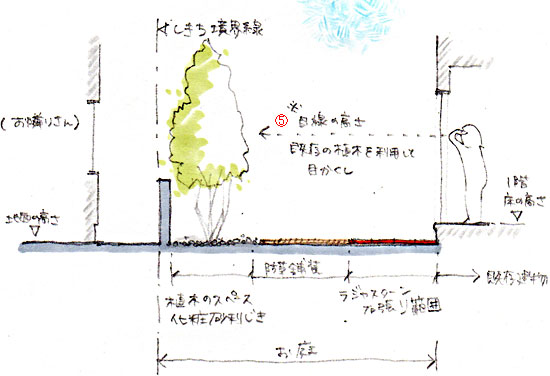 しきち境界線
(お隣りさん)
⑤
※
目線の高さ
既存の植木を利用して
目かくし
地面の高さ
1階
床の高さ
防草舗装
既存建物
植木のスペース
化粧砂利じき
範囲
お庭